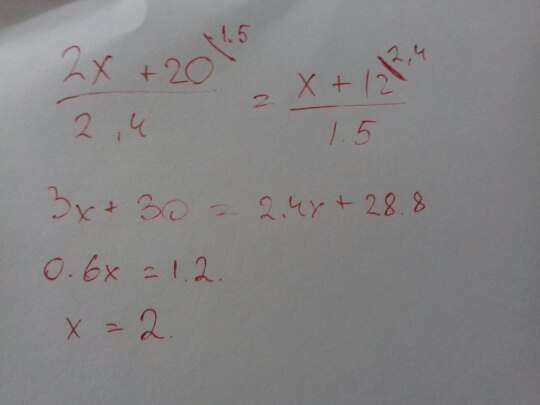 2x + 20 \ 1.5 = x + 12 \ 2,4
2,4 1.5
3x + 30 = 2.4x + 28.8
0.6x = 1.2.
x = 2.